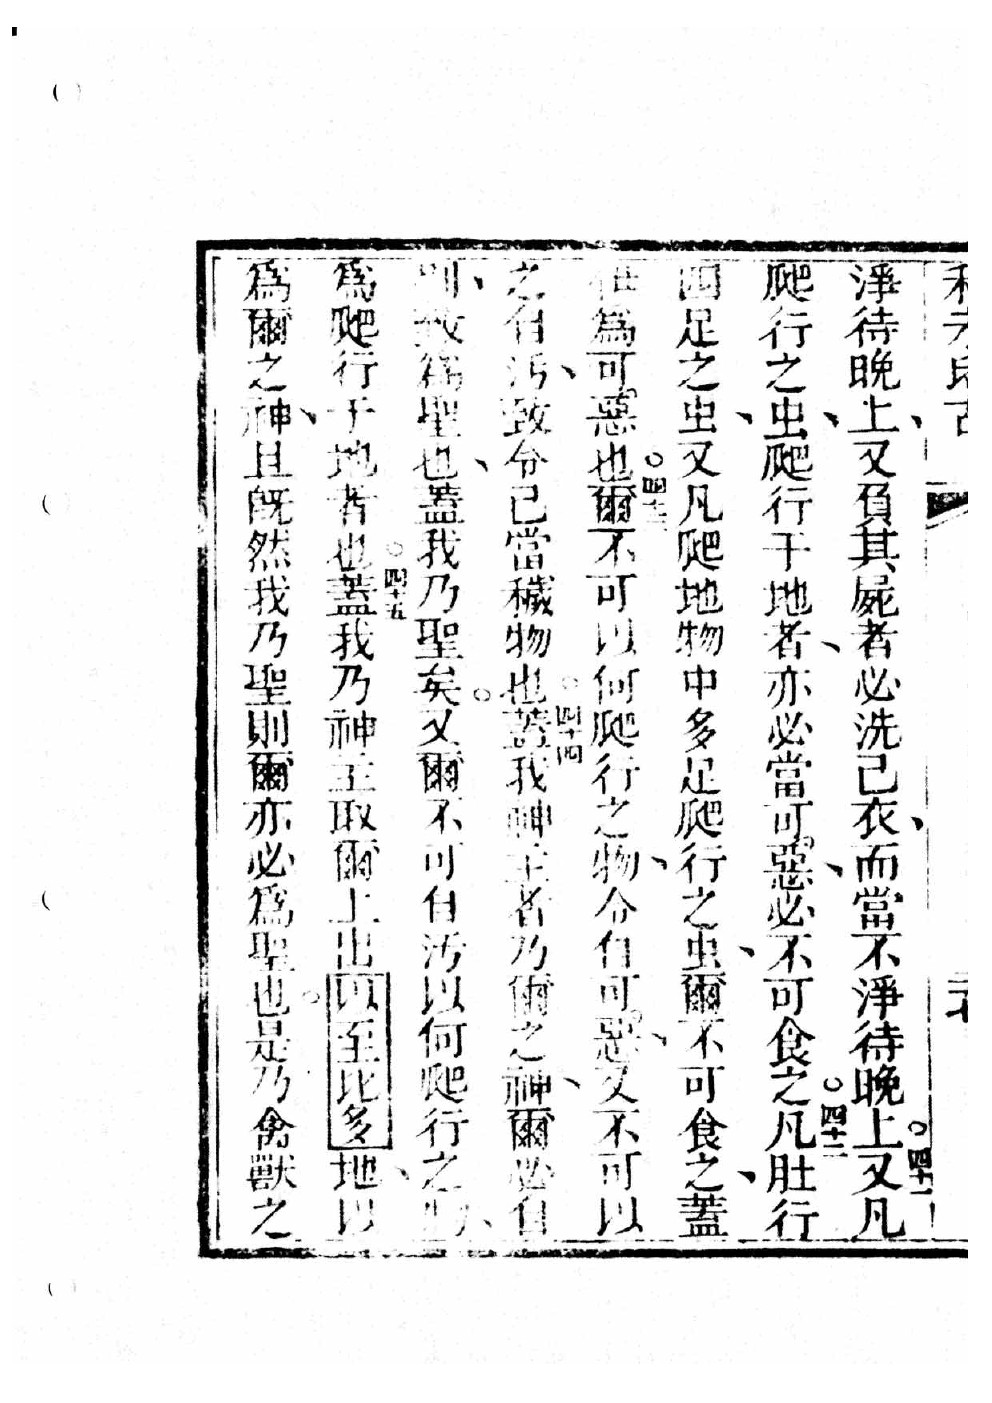 淨待晚上、又負其屍者必洗己衣、而當不淨待晚上○四十一又凡
爬行之虫、爬行于地者、亦必當可惡、必不可食之○四十二凡肚行
四足之虫、又凡爬地物中多足爬行之虫、爾不可食之、蓋
為可惡也○四十三爾不可以何爬行之物、令自可惡、又不可以
之自污、致令己當穢物也○四十四蓋我神主者乃爾之神、爾必自
別、致為聖也、蓋我乃聖矣○又爾不可自污以何爬行之生、
為爬行于地者也○四十五蓋我乃神主取爾上出以至比多地、以
為爾之神、且既然我乃聖、則爾亦必為聖也○是乃禽獸之